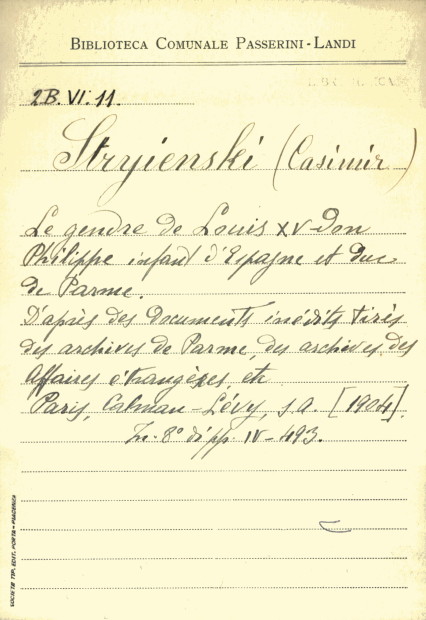 BIBLIOTECA COMUNALE PASSERINI-LANDI
2B. VI. 11.
Stryienski (Casimir)
Le gendre de Louis XV-Don
Philippe infant d'Espagne et duc
de Parme.
D'après des documents inédits tirés
des archives de Parme, des archives des
Affaires étrangères, etc
Paris, Calman-Lévy, s.a. [1904].
In-8° di pp. IV-493.
SOCIETÀ TIP. EDIT. PORTA - PIACENZA